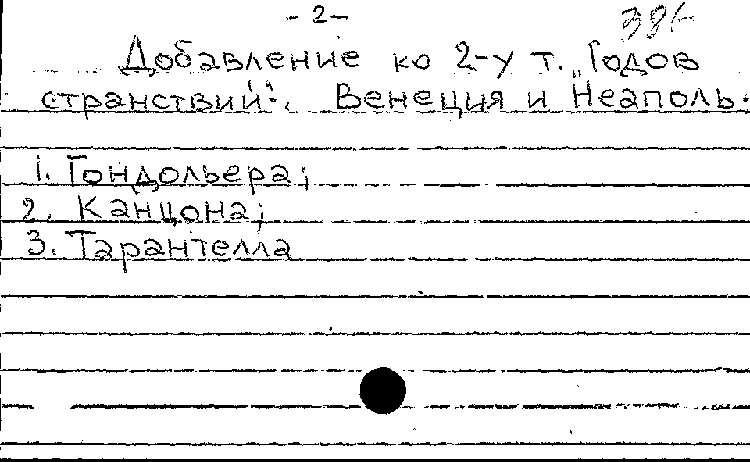 - 2 -
Добавление ко 2-у т. "Годов
странствий". Венеция и Неаполь.
1. Гондольера;
2. Канцона;
3. Тарантелла